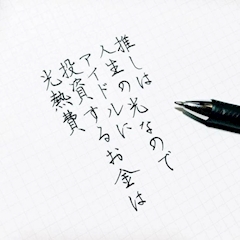 推しは光なので
人生のルに
アイドするお金は
投資
光熱費